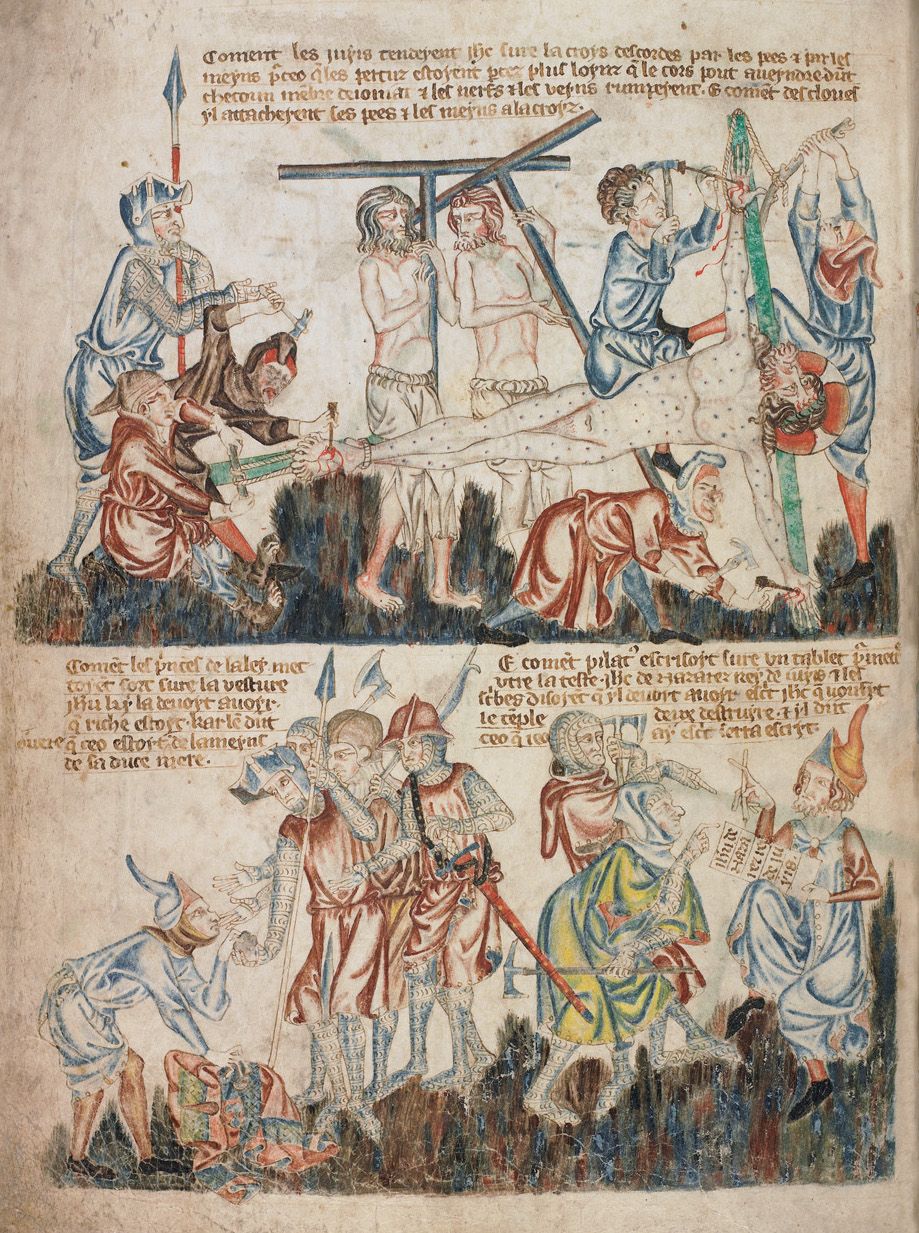 Coment les iuyis tendeyent ihc sure la croys des cordes par les pees & par les
meyns pur ceo qe les pertuz estoyent fetez plus loynz qe le cors pout aveyndre dunt
checoun membre deioniat & les nerfs & les veyns rumpeyent. E coment des cloues
yl attacheyent ses pees & les meyns a la croyz.
Coment les princes de la ley met
toyent sort sure la vesture
ihu ky la devoyt avoyr.
q riche estoyt. kar le dut
overe q ceo estoyt de la meyns
de sa duce mere.
E coment pilatus escrisoyt sure un tablet
utre la teste ihc de nazareth rey de iuys & les
disoyt q yl devoyt avoyr escrit ihc q vousist
le temple deux destruyre. & yl dut
ceo q ieo ay escrit serra escrit.
ihu de
naza
reht re
de iu
yis